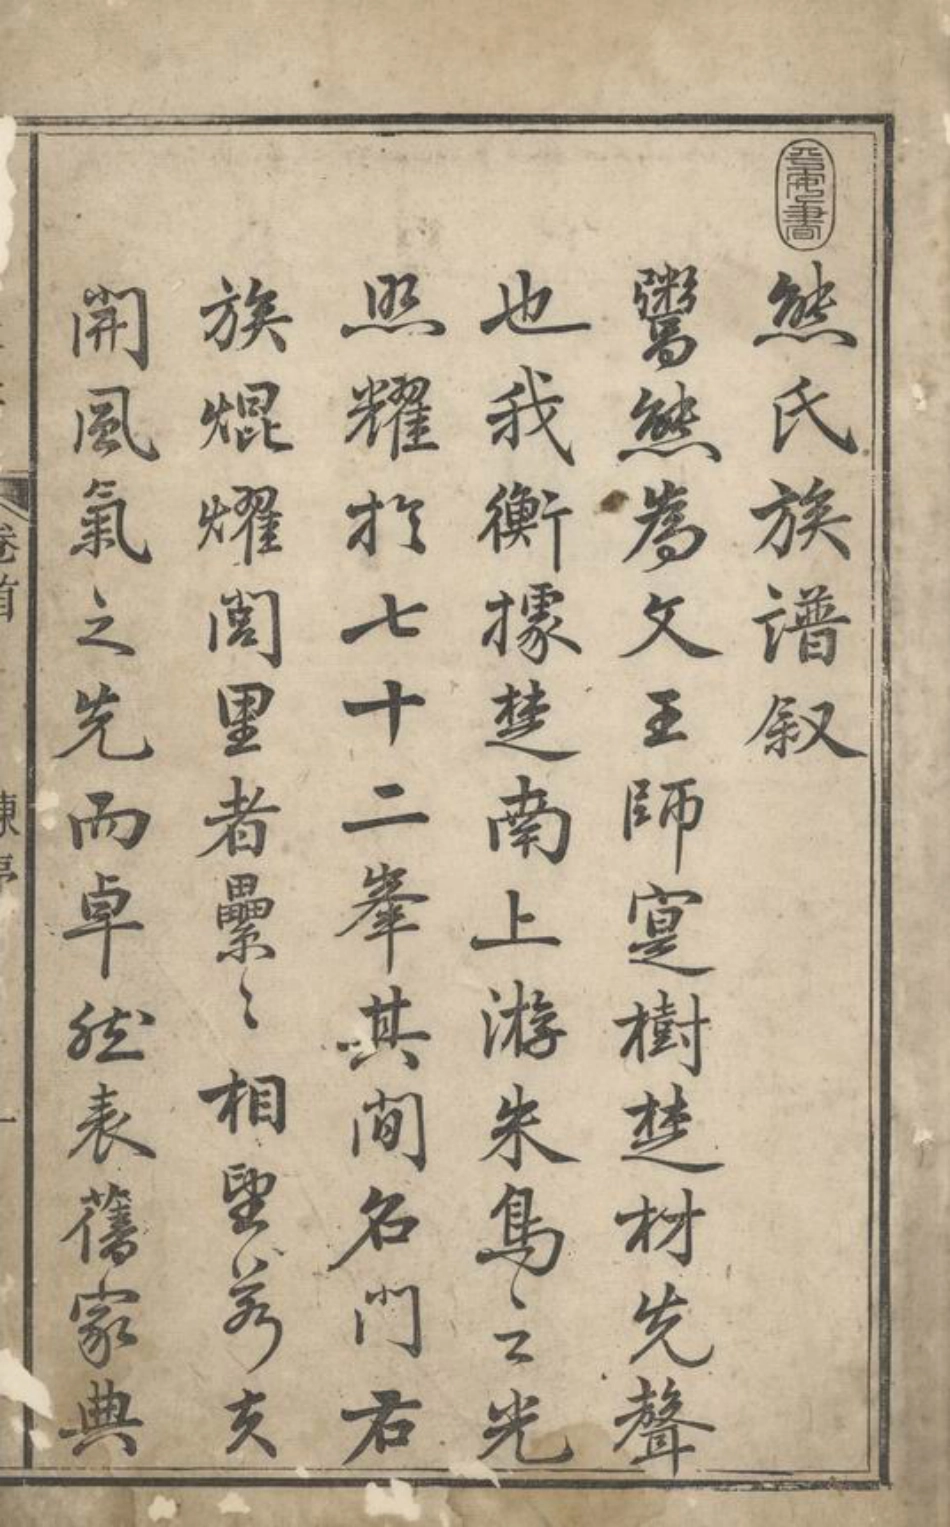 熊氏族譜叙
鬻熊為文王師寔樹楚材先聲
也我衡據楚南上游朱鳥之光
照耀於七十二峯其間名門右
族焜燿閭里者纍〻相望若夫
開風氣之先而卓然表舊家典
卷首
一